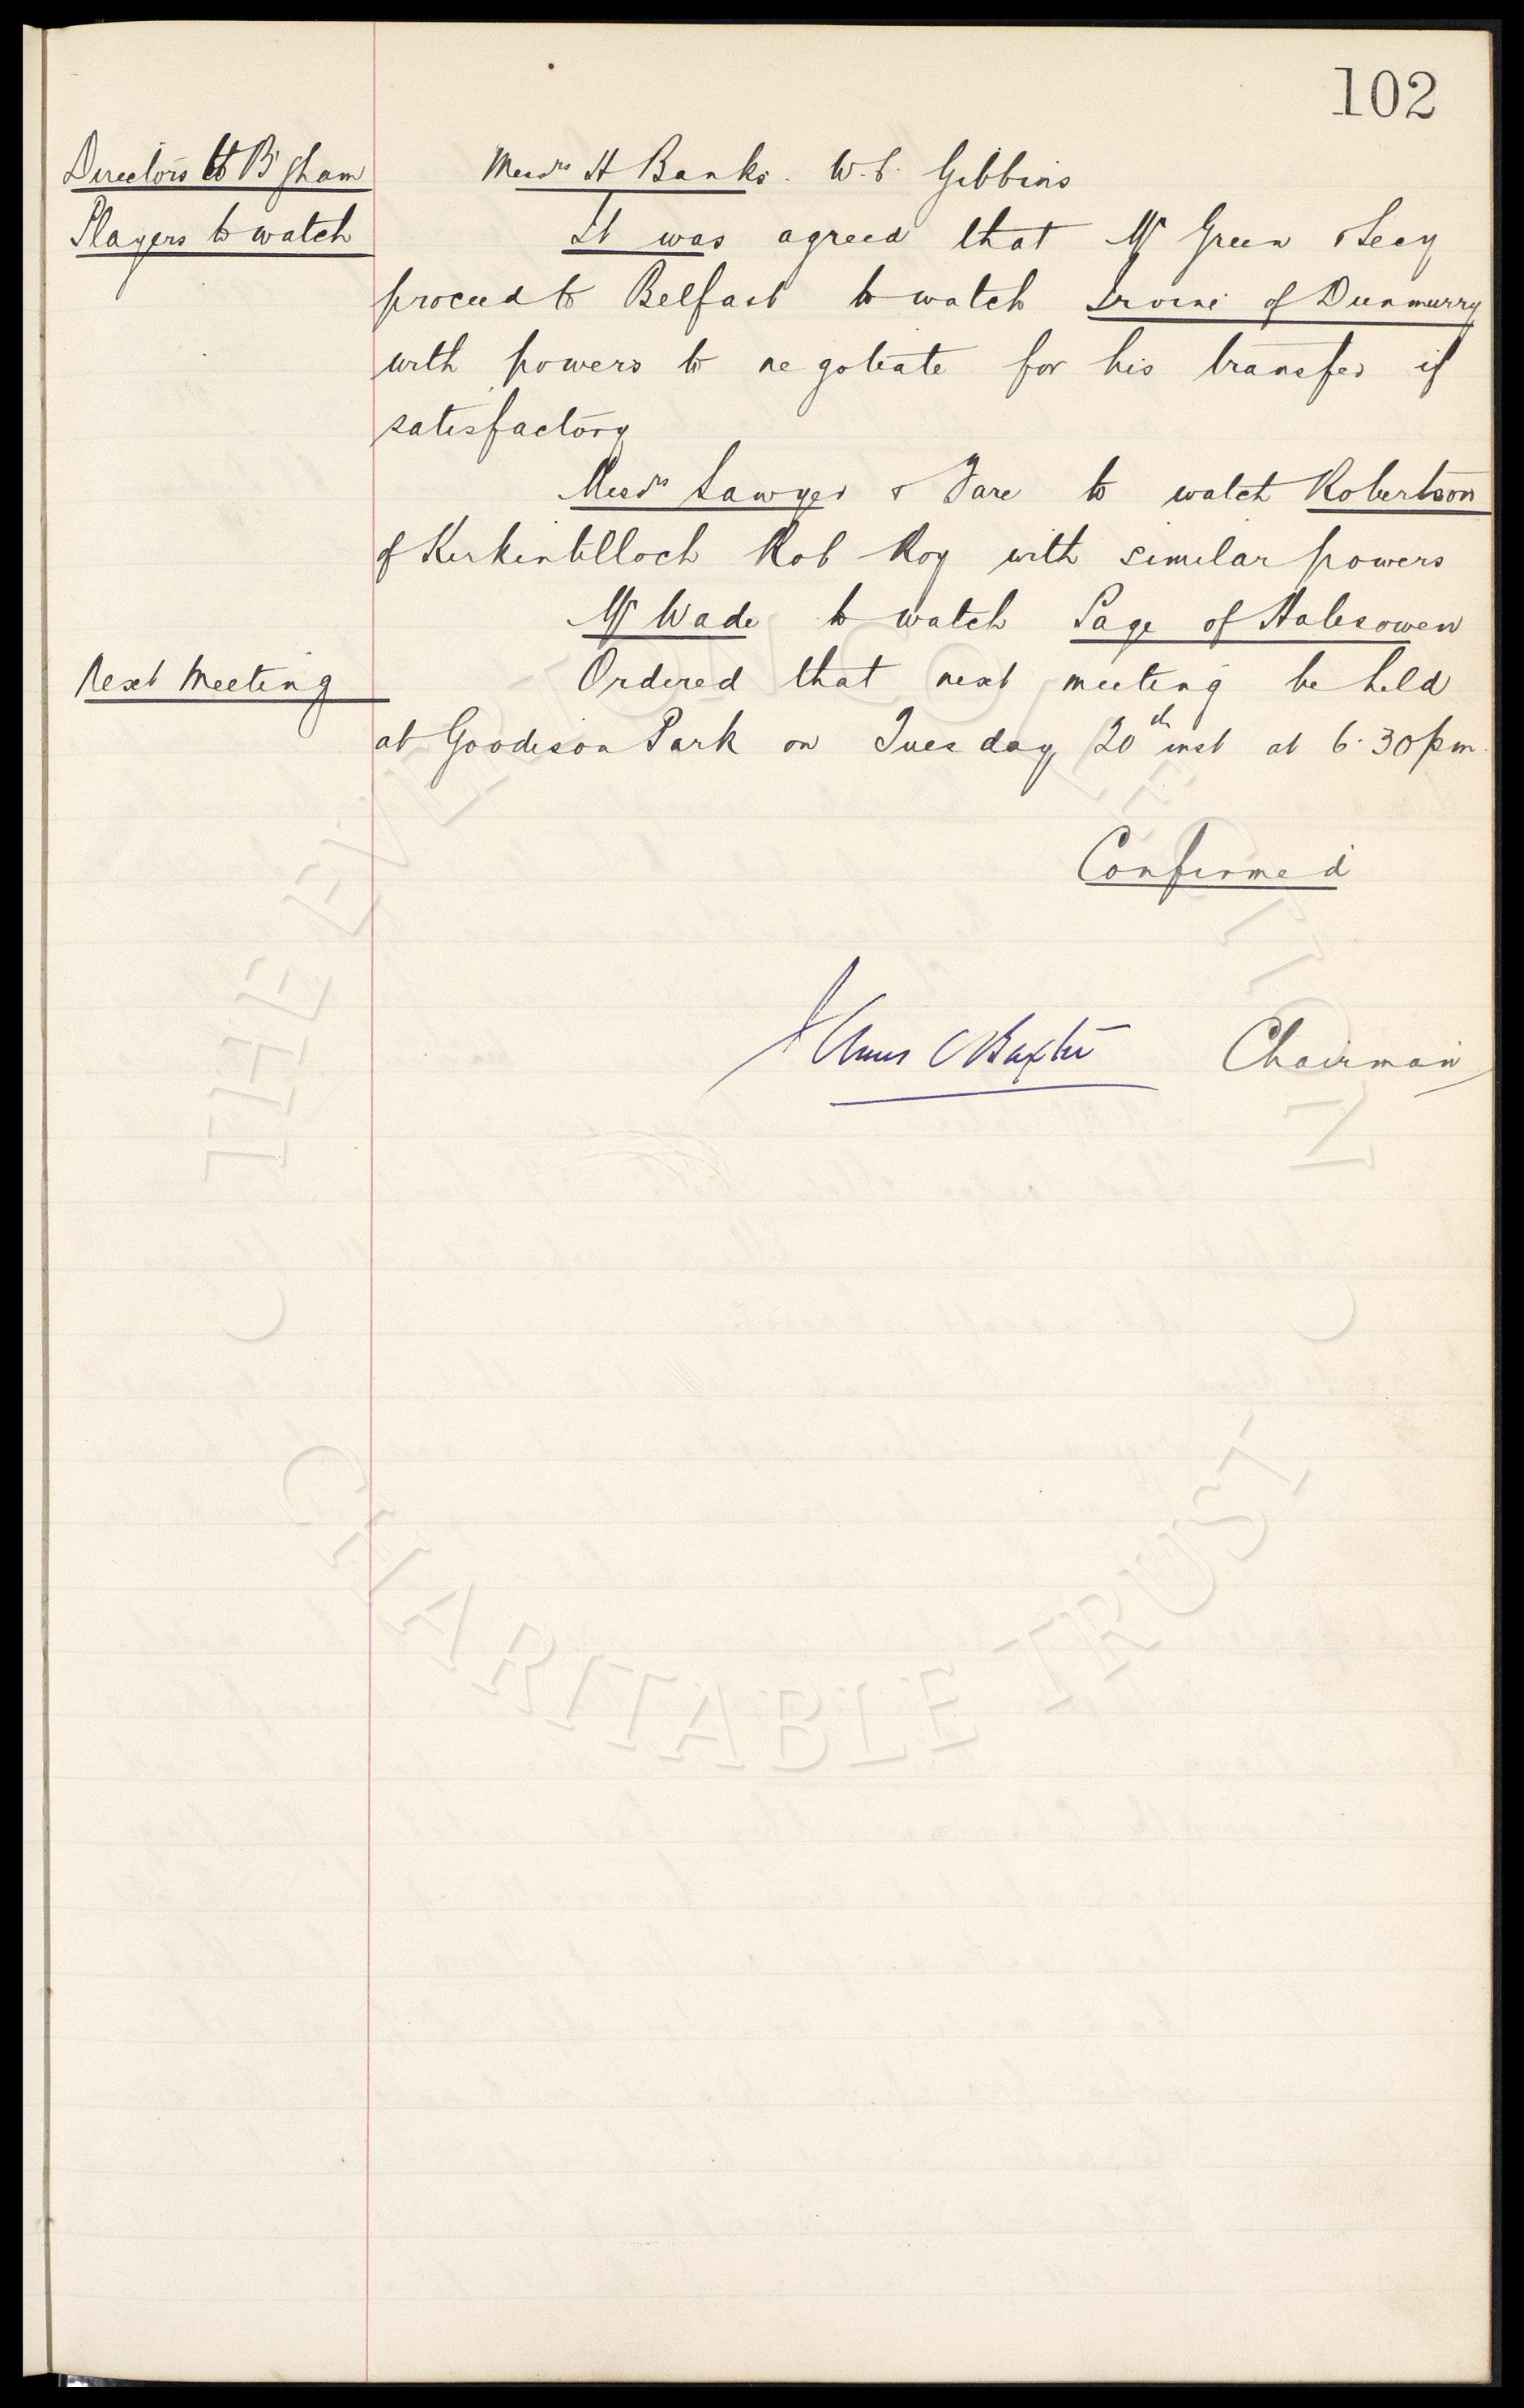 102
Directors to B'gham Messrs H Banks. W.C. Gibbins
Players to watch It was agreed that Mr Green & Secy
proceed to Belfast to watch Irvine of Dunmurry
with powers to negotiate for his transfer if
satisfactory
Messrs Sawyer & Fare to watch Robertson
of Kirkintilloch Rob Roy with similar powers
Mr Wade to watch Page of Halesowen
Next Meeting Ordered that next meeting be held
at Goodison Park on Tuesday 20th inst at 6.30 pm.
Confirmed
Baxter Chairman
THE EVERTON COLLECTION
CHARITABLE TRUST